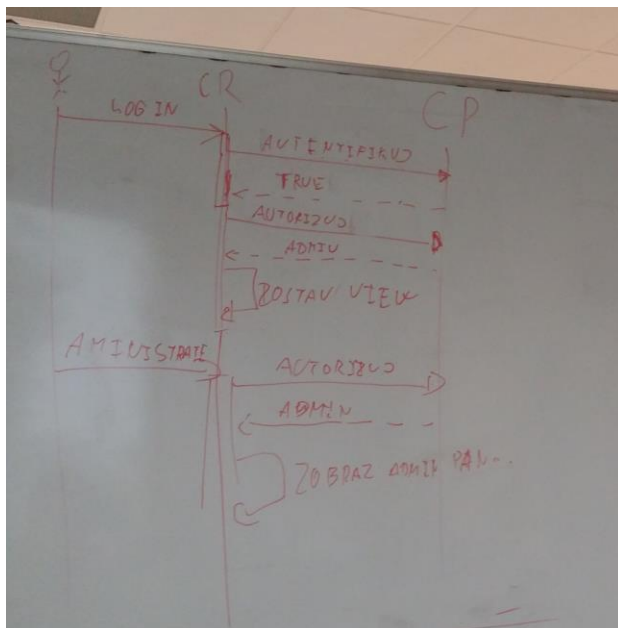 CR
CP
LOG IN
AUTENTIFIKUJ
TRUE
AUTORIZUJ
ADMIN
ZOSTAV VIEW
AMINISTRATE
AUTORIZUJ
ADMIN
ZOBRAZ ADMIN PAN...